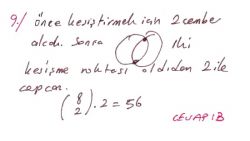 9./ önce kesiştirmek için 2 çember
alcak. sonra iki
kesişme noktası olduğundan 2 ile
çarpar.
(8 2) . 2 = 56
CEVAP: B